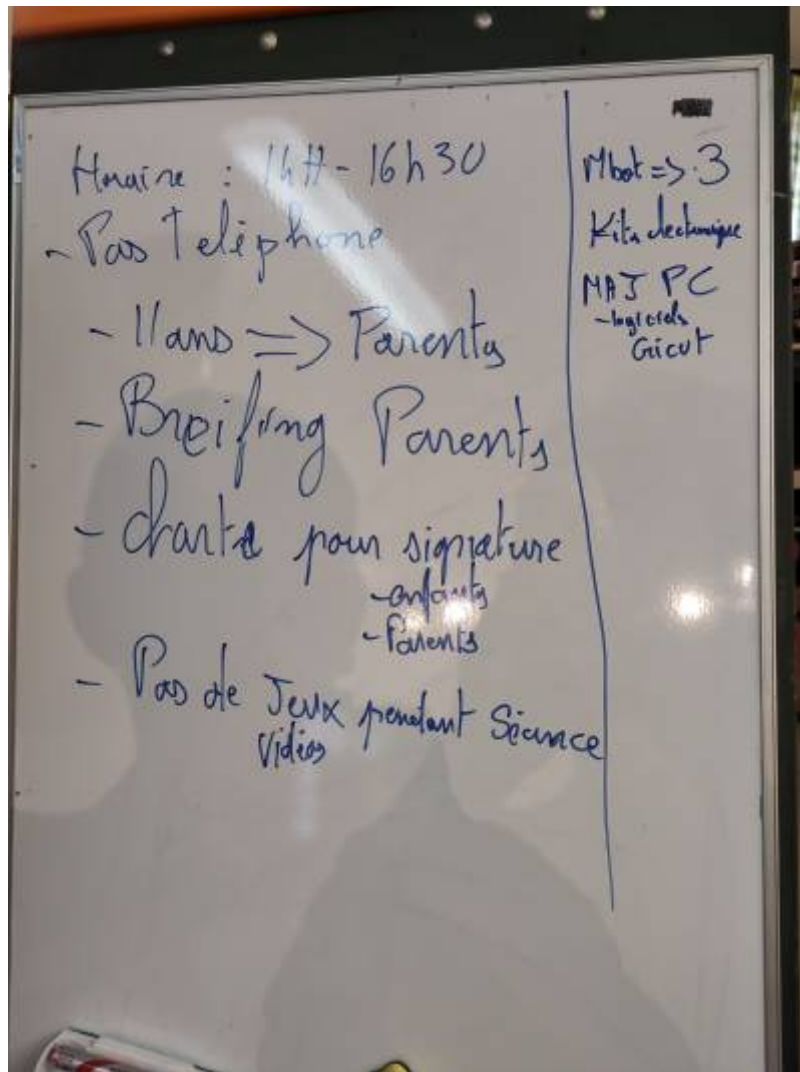 Horaire : 14H - 16h30
- Pas Teléphone
- 11 ans => Parents
- Breifing Parents
- charte pour signature
- enfants
- Parents
- Pas de Jeux pendant Séance
Vidéos
Mbot => 3
Kits électronique
MAJ PC
- logiciels
Gicut